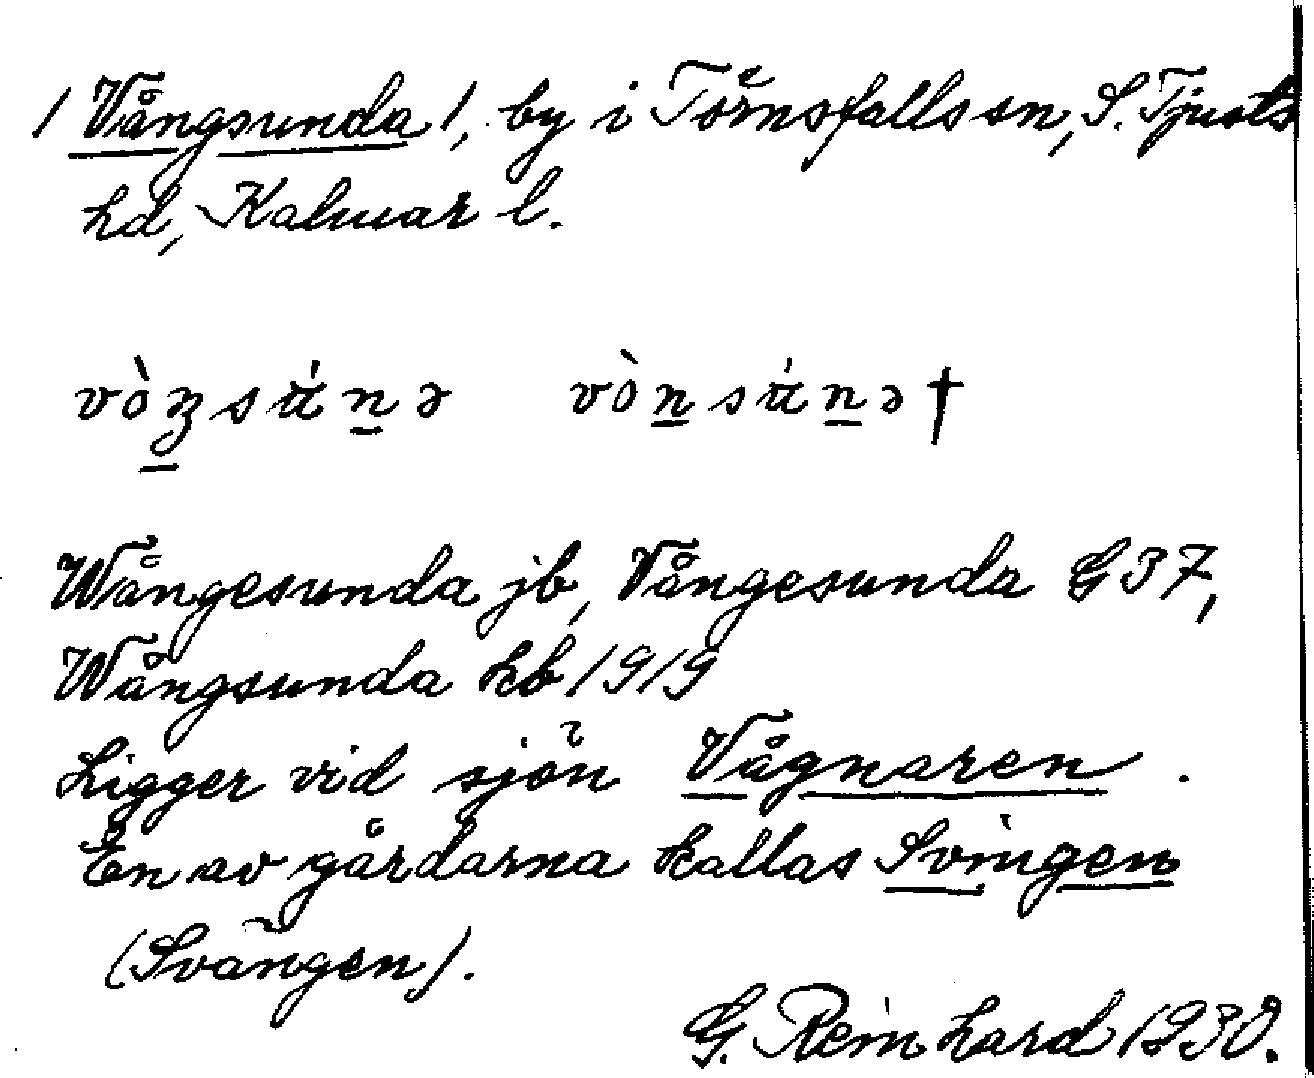 /Vångsunda/, by i Törnsfalls sn, S. Tjusts
hd, Kalmar l.
Wångesunda jb, Vångesunda G 37,
Wångsunda kb 1919
Ligger vid sjön Vågnaren.
En av gårdarna kallas Svingen
(Svängen).
G. Reinhard 1930.